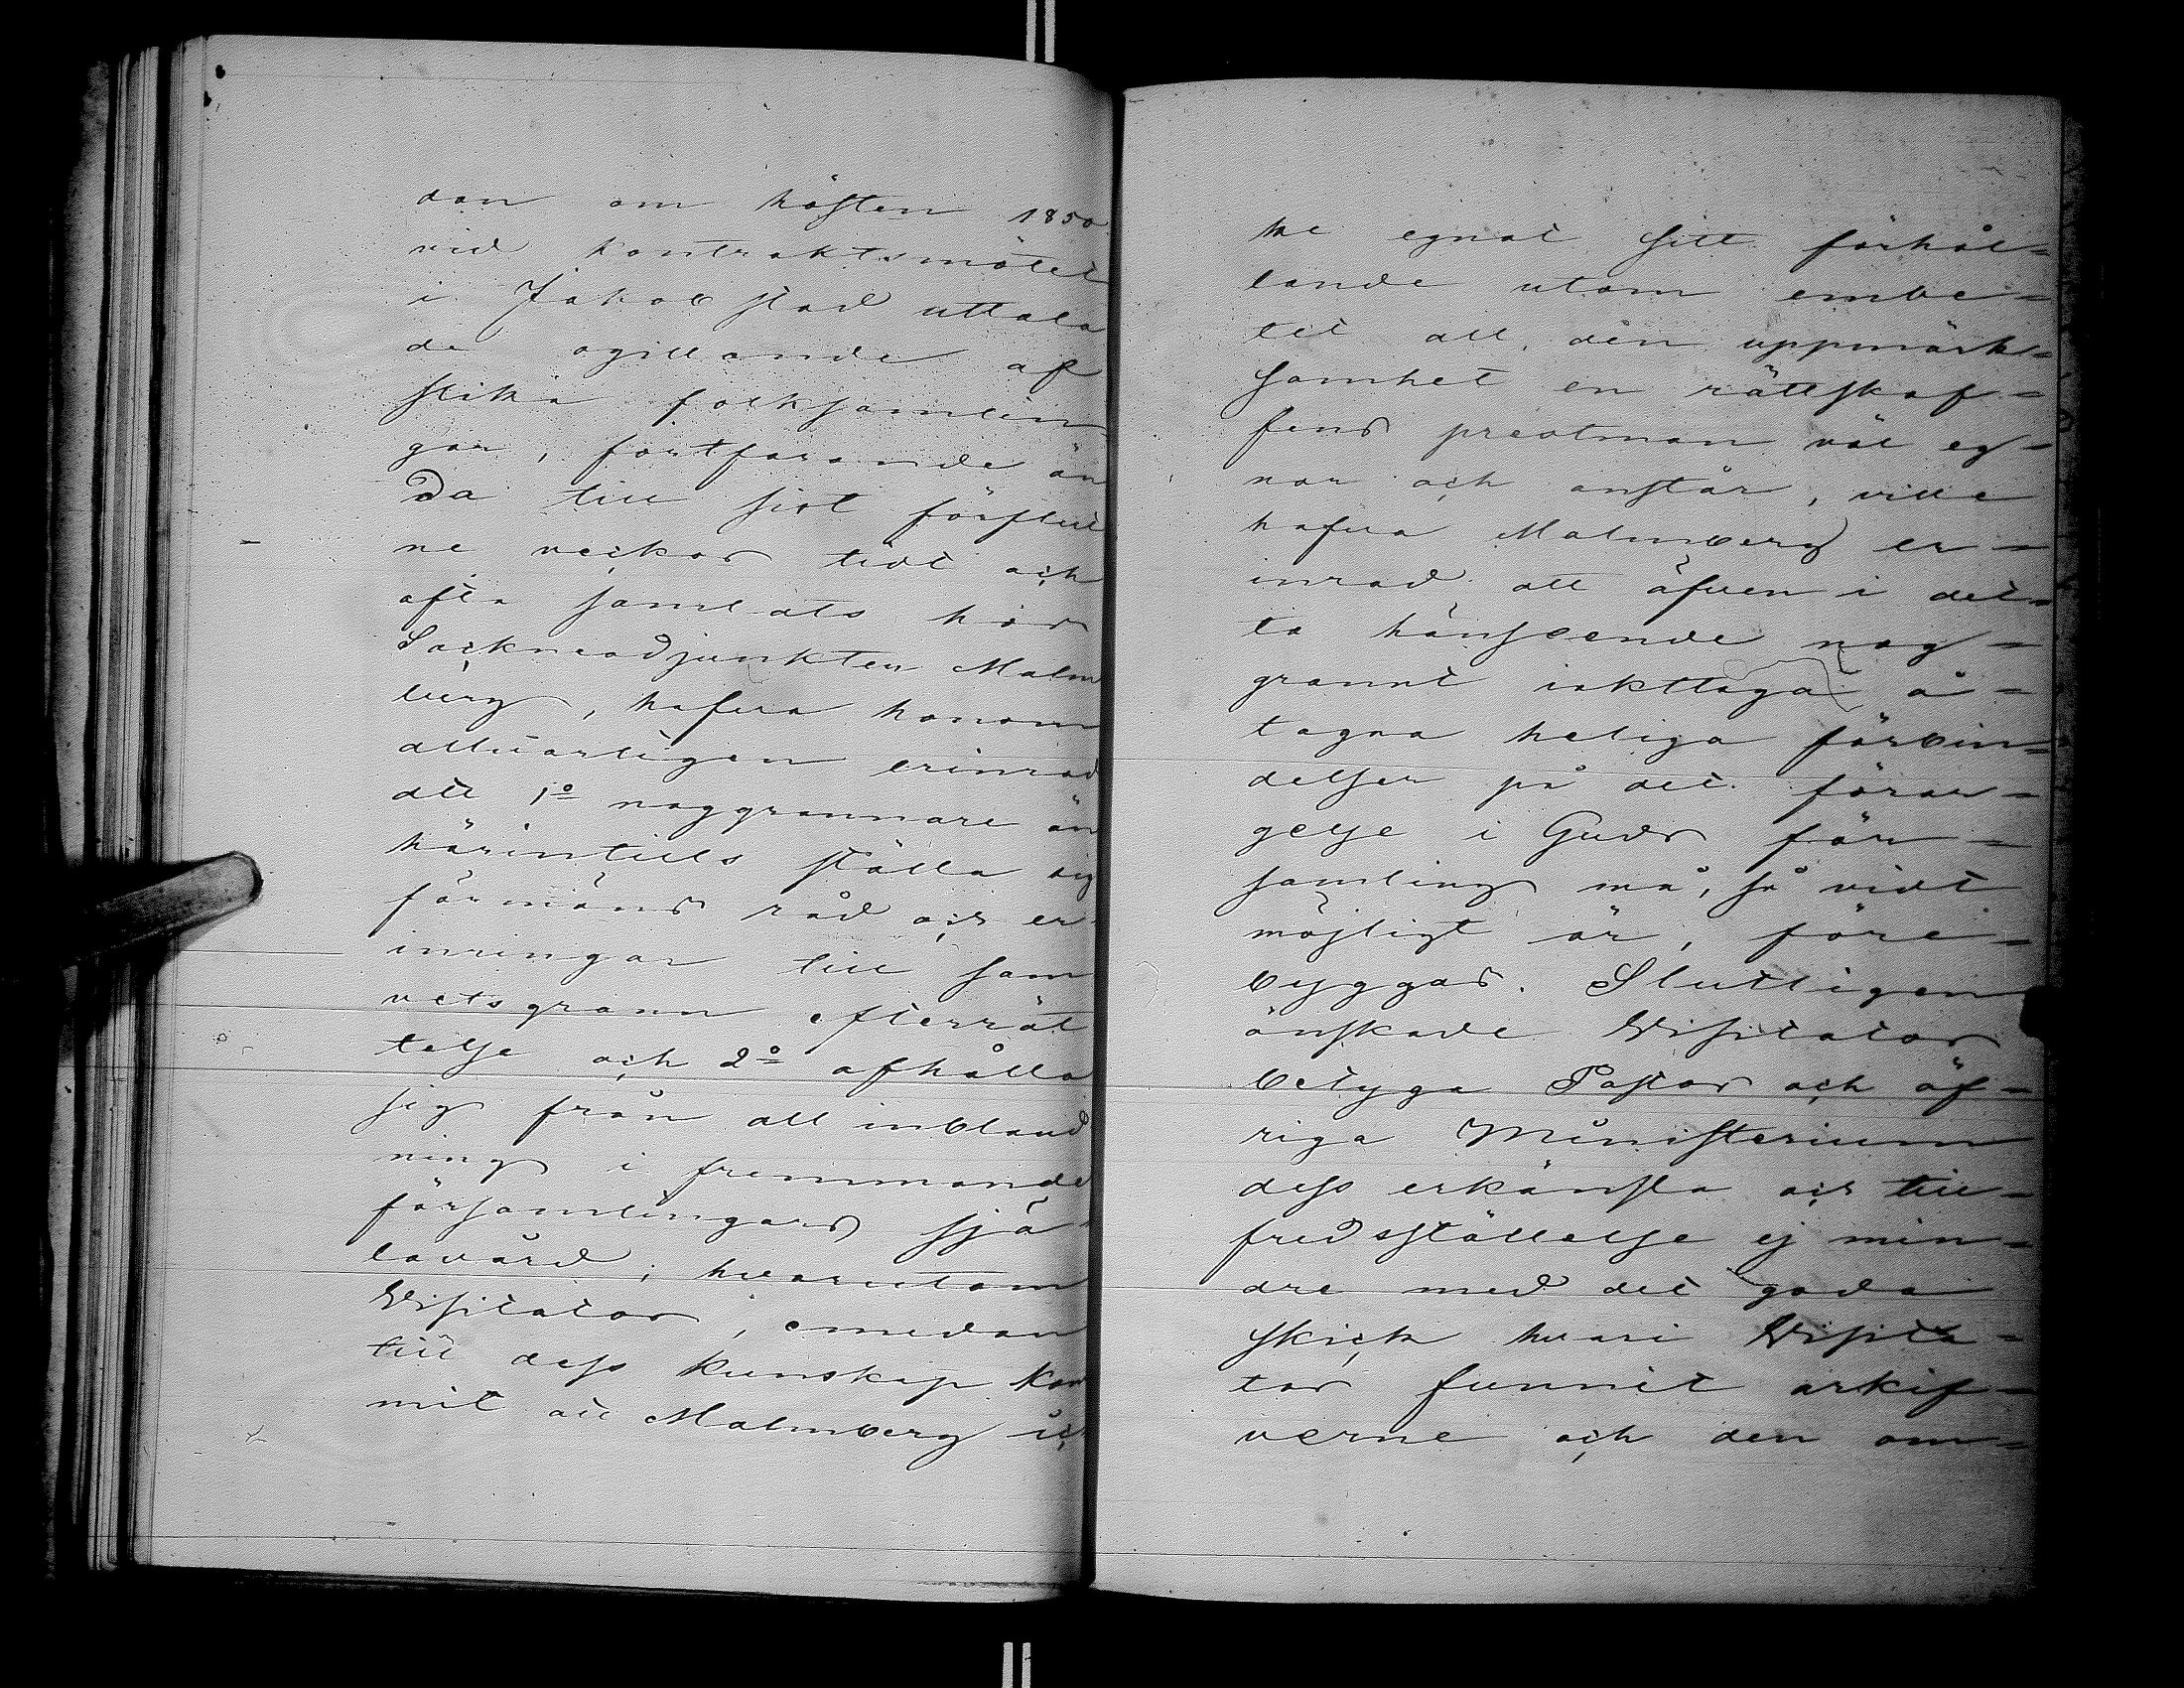 dan om hösten 1850
vid kontraktsmötet
i Jakobstad uttala
de ogillande af
slika folksamlin
gar, fortfarande än
da till sist förflut
ne veckor tidt och
ofta samlats hos
Sockneadjunkten Malm
berg, hafva honom
allvarligen erinrad
att 1o noggrannare än
härintills ställa sig
förmäns råd och er
inringar till sam
vetsgrann efterrät
telse och 2o afhålla
sig från all inbland
ning i fremmande
församlingars sjä
lavård; hvarutom
Visitator, emedan
till dess kunskap kom
mit att Malmberg ic
ke egnat sitt förhål=
lande utom embe=
tet all den uppmärk=
samhet en rättskaf=
fens prestman väl eg=
nar och anstår, ville
hafva Malmberg er=
inrad att äfven i det=
ta hänseende nog=
grannt iakttaga å=
tagna heliga förbin=
delser på det förar=
gelse i Guds för=
samling må, så vidt
möjligt är, före=
byggas. Slutligen
önskade Visitator
betyga Pastor och öf=
riga Ministerium
dess erkänsla och till=
fredsställelse ej min=
dre med det goda
skick hvari Visita=
tor funnit arkif=
verne och den om=